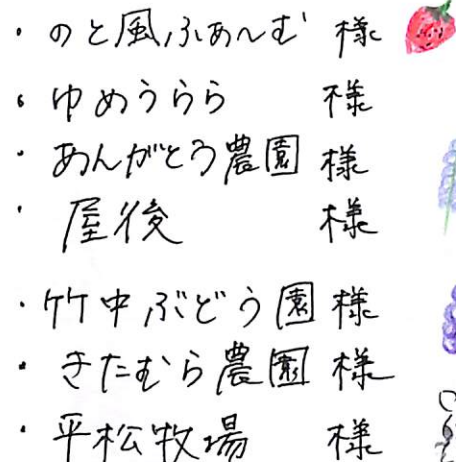 ・のと風ふぁ〜む 様
・ゆめうらら 様
・あんがとう農園 様
・屋後 様
・竹中ぶどう園 様
・きたむら農園 様
・平松牧場 様